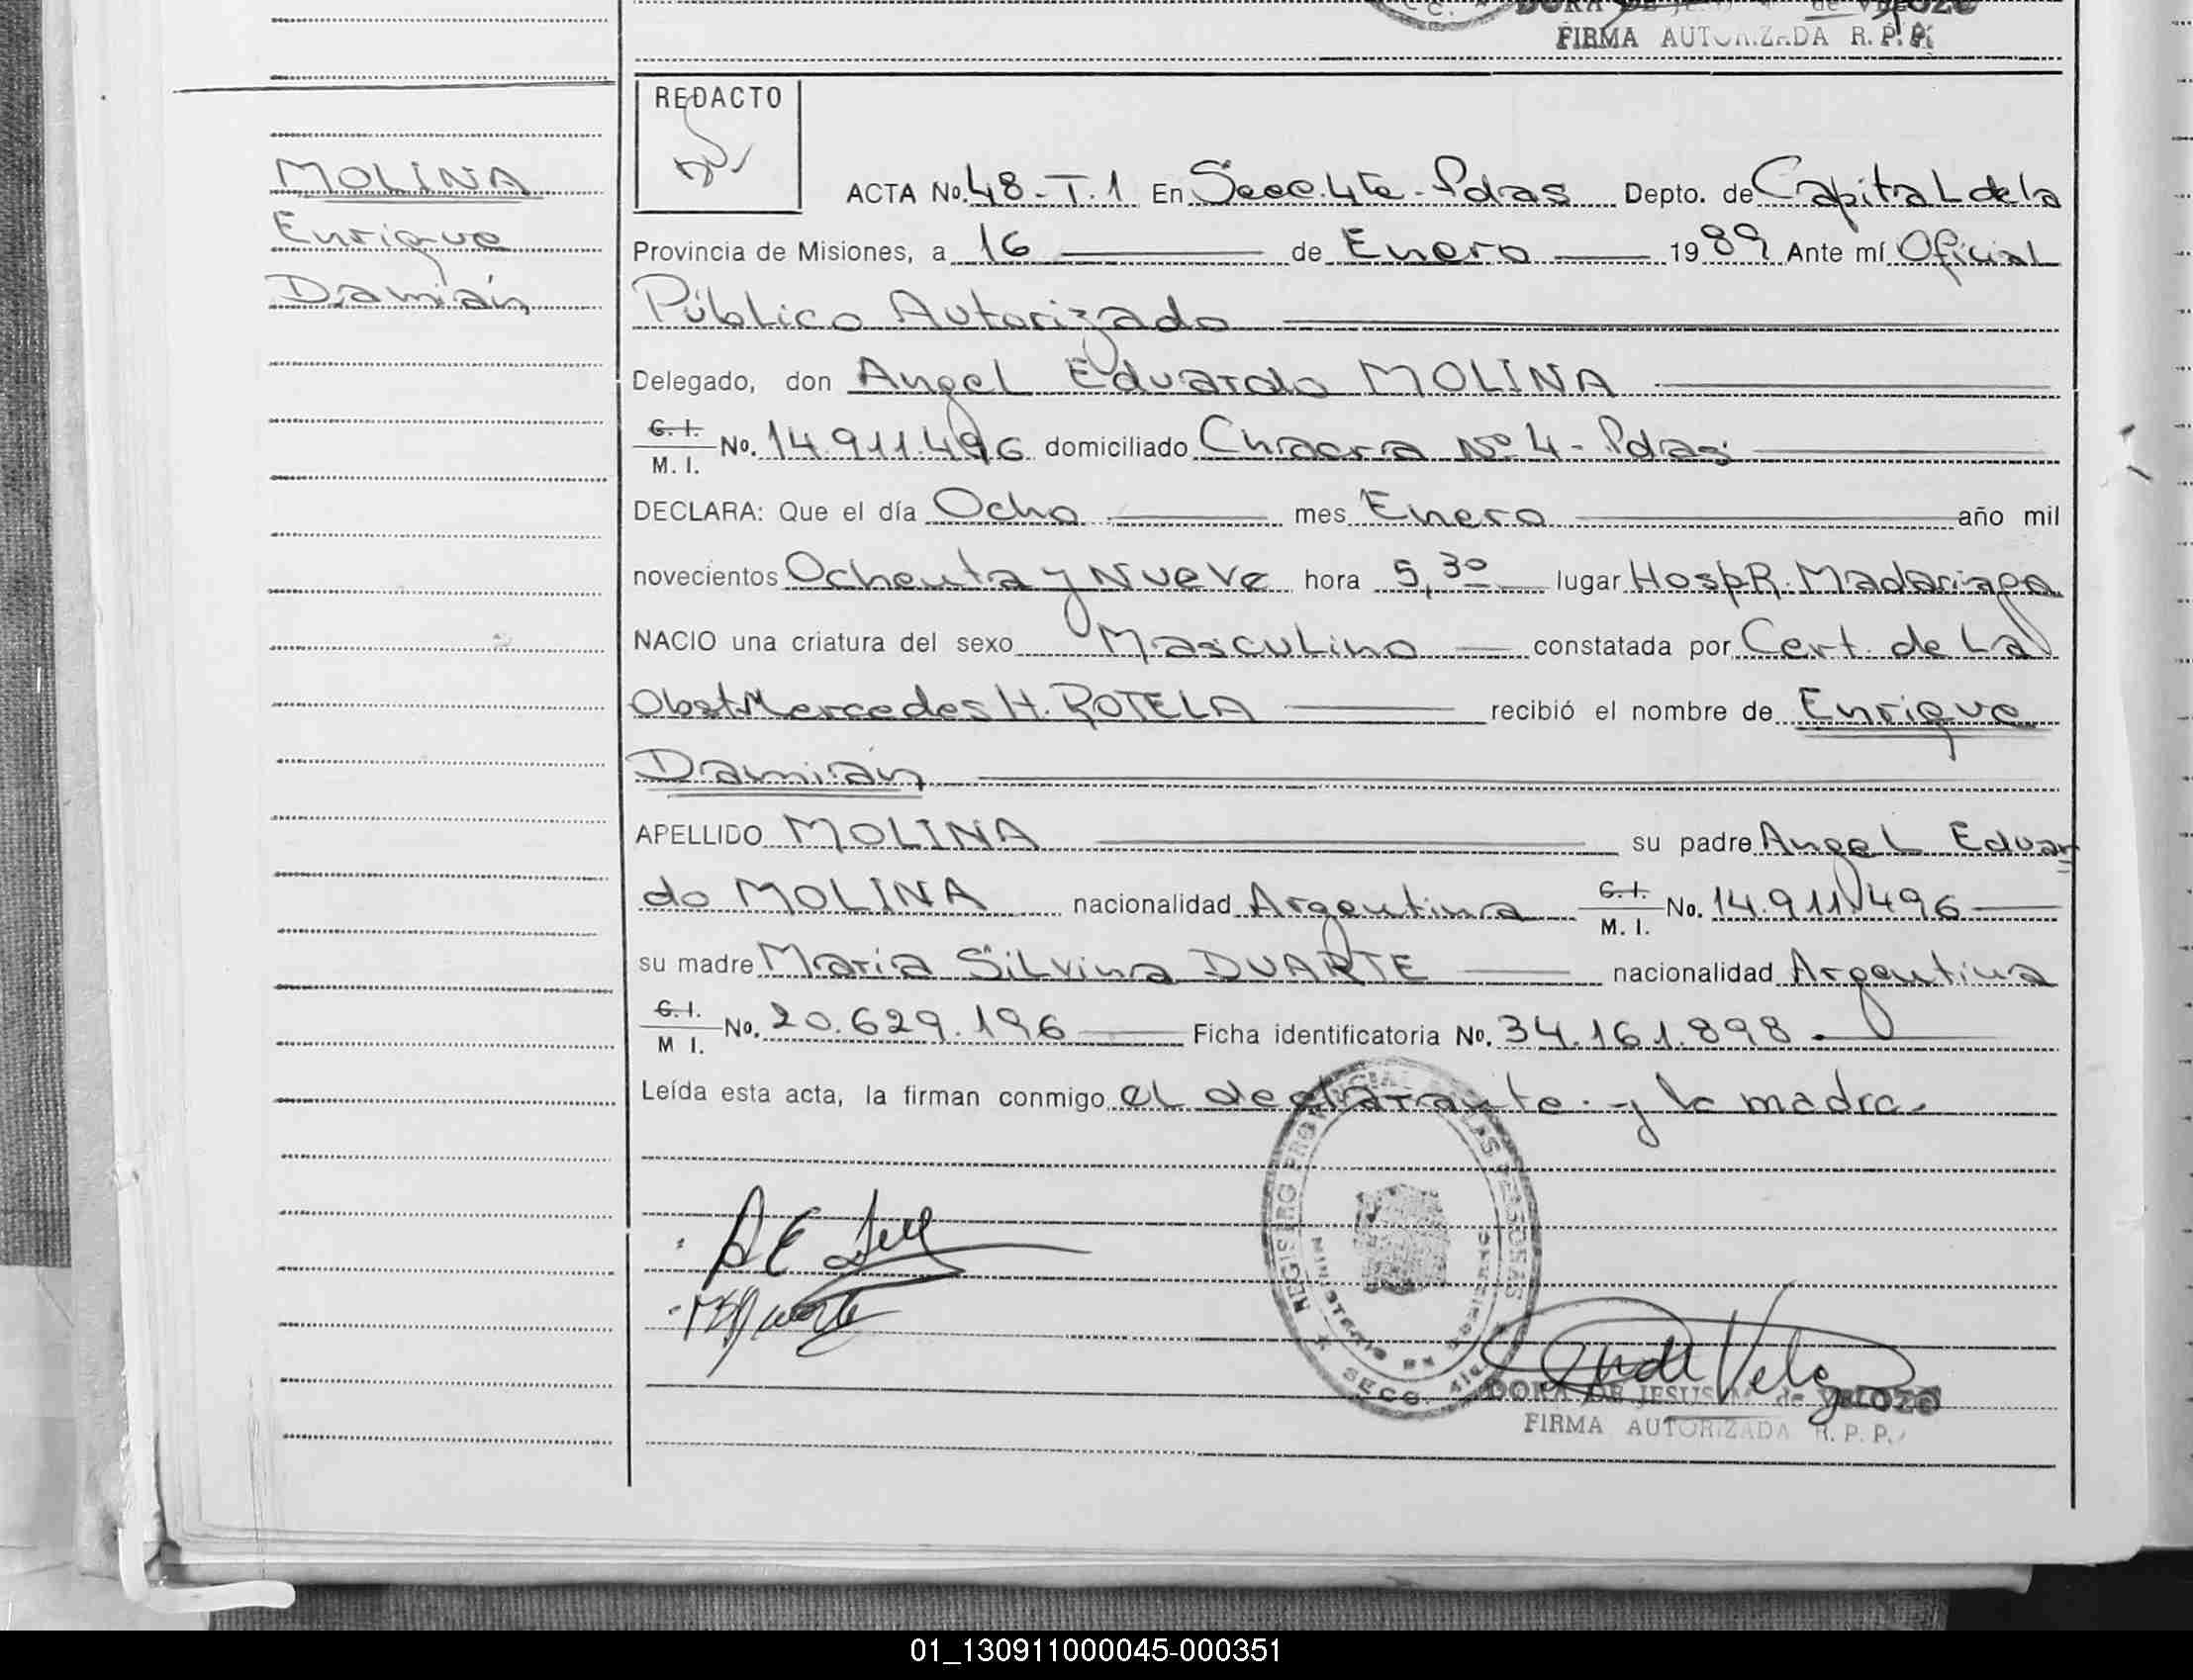 FIRMA AUTORIZADA R. P. P.
REDACTO
MOLINA
Enrique
Damián
ACTA No. 48-T.1 En Secc. 4ta - Pdas Depto. de Capital de la
Provincia de Misiones, a 16 de Enero 1989 Ante mí Oficial
Público Autorizado
Delegado, don Angel Eduardo MOLINA
C. I.
M. I. No. 14.911.496 domiciliado Chacra Nº 4 - Pdas
DECLARA: Que el día Ocho mes Enero año mil
novecientos Ochenta y Nueve hora 5,30 lugar Hosp R. Madariaga
NACIO una criatura del sexo Masculino constatada por Cert. de La
Obst Mercedes H. ROTELA recibió el nombre de Enrique
Damián
APELLIDO MOLINA su padre Angel Eduar
do MOLINA nacionalidad Argentina C. I. M. I. No. 14.911.496
su madre Maria Silvina DUARTE nacionalidad Argentina
C. I.
M I. No. 20.629.196 Ficha identificatoria No. 34.161.898
Leída esta acta, la firman conmigo el declarante y la madre.
REGISTRO PROVINCIAL DE LAS PERSONAS
MINISTERIO DE GOBIERNO
SECC. 4ta
DORA DE JESUS M. de VELOZO
FIRMA AUTORIZADA R. P. P.
01_130911000045-000351